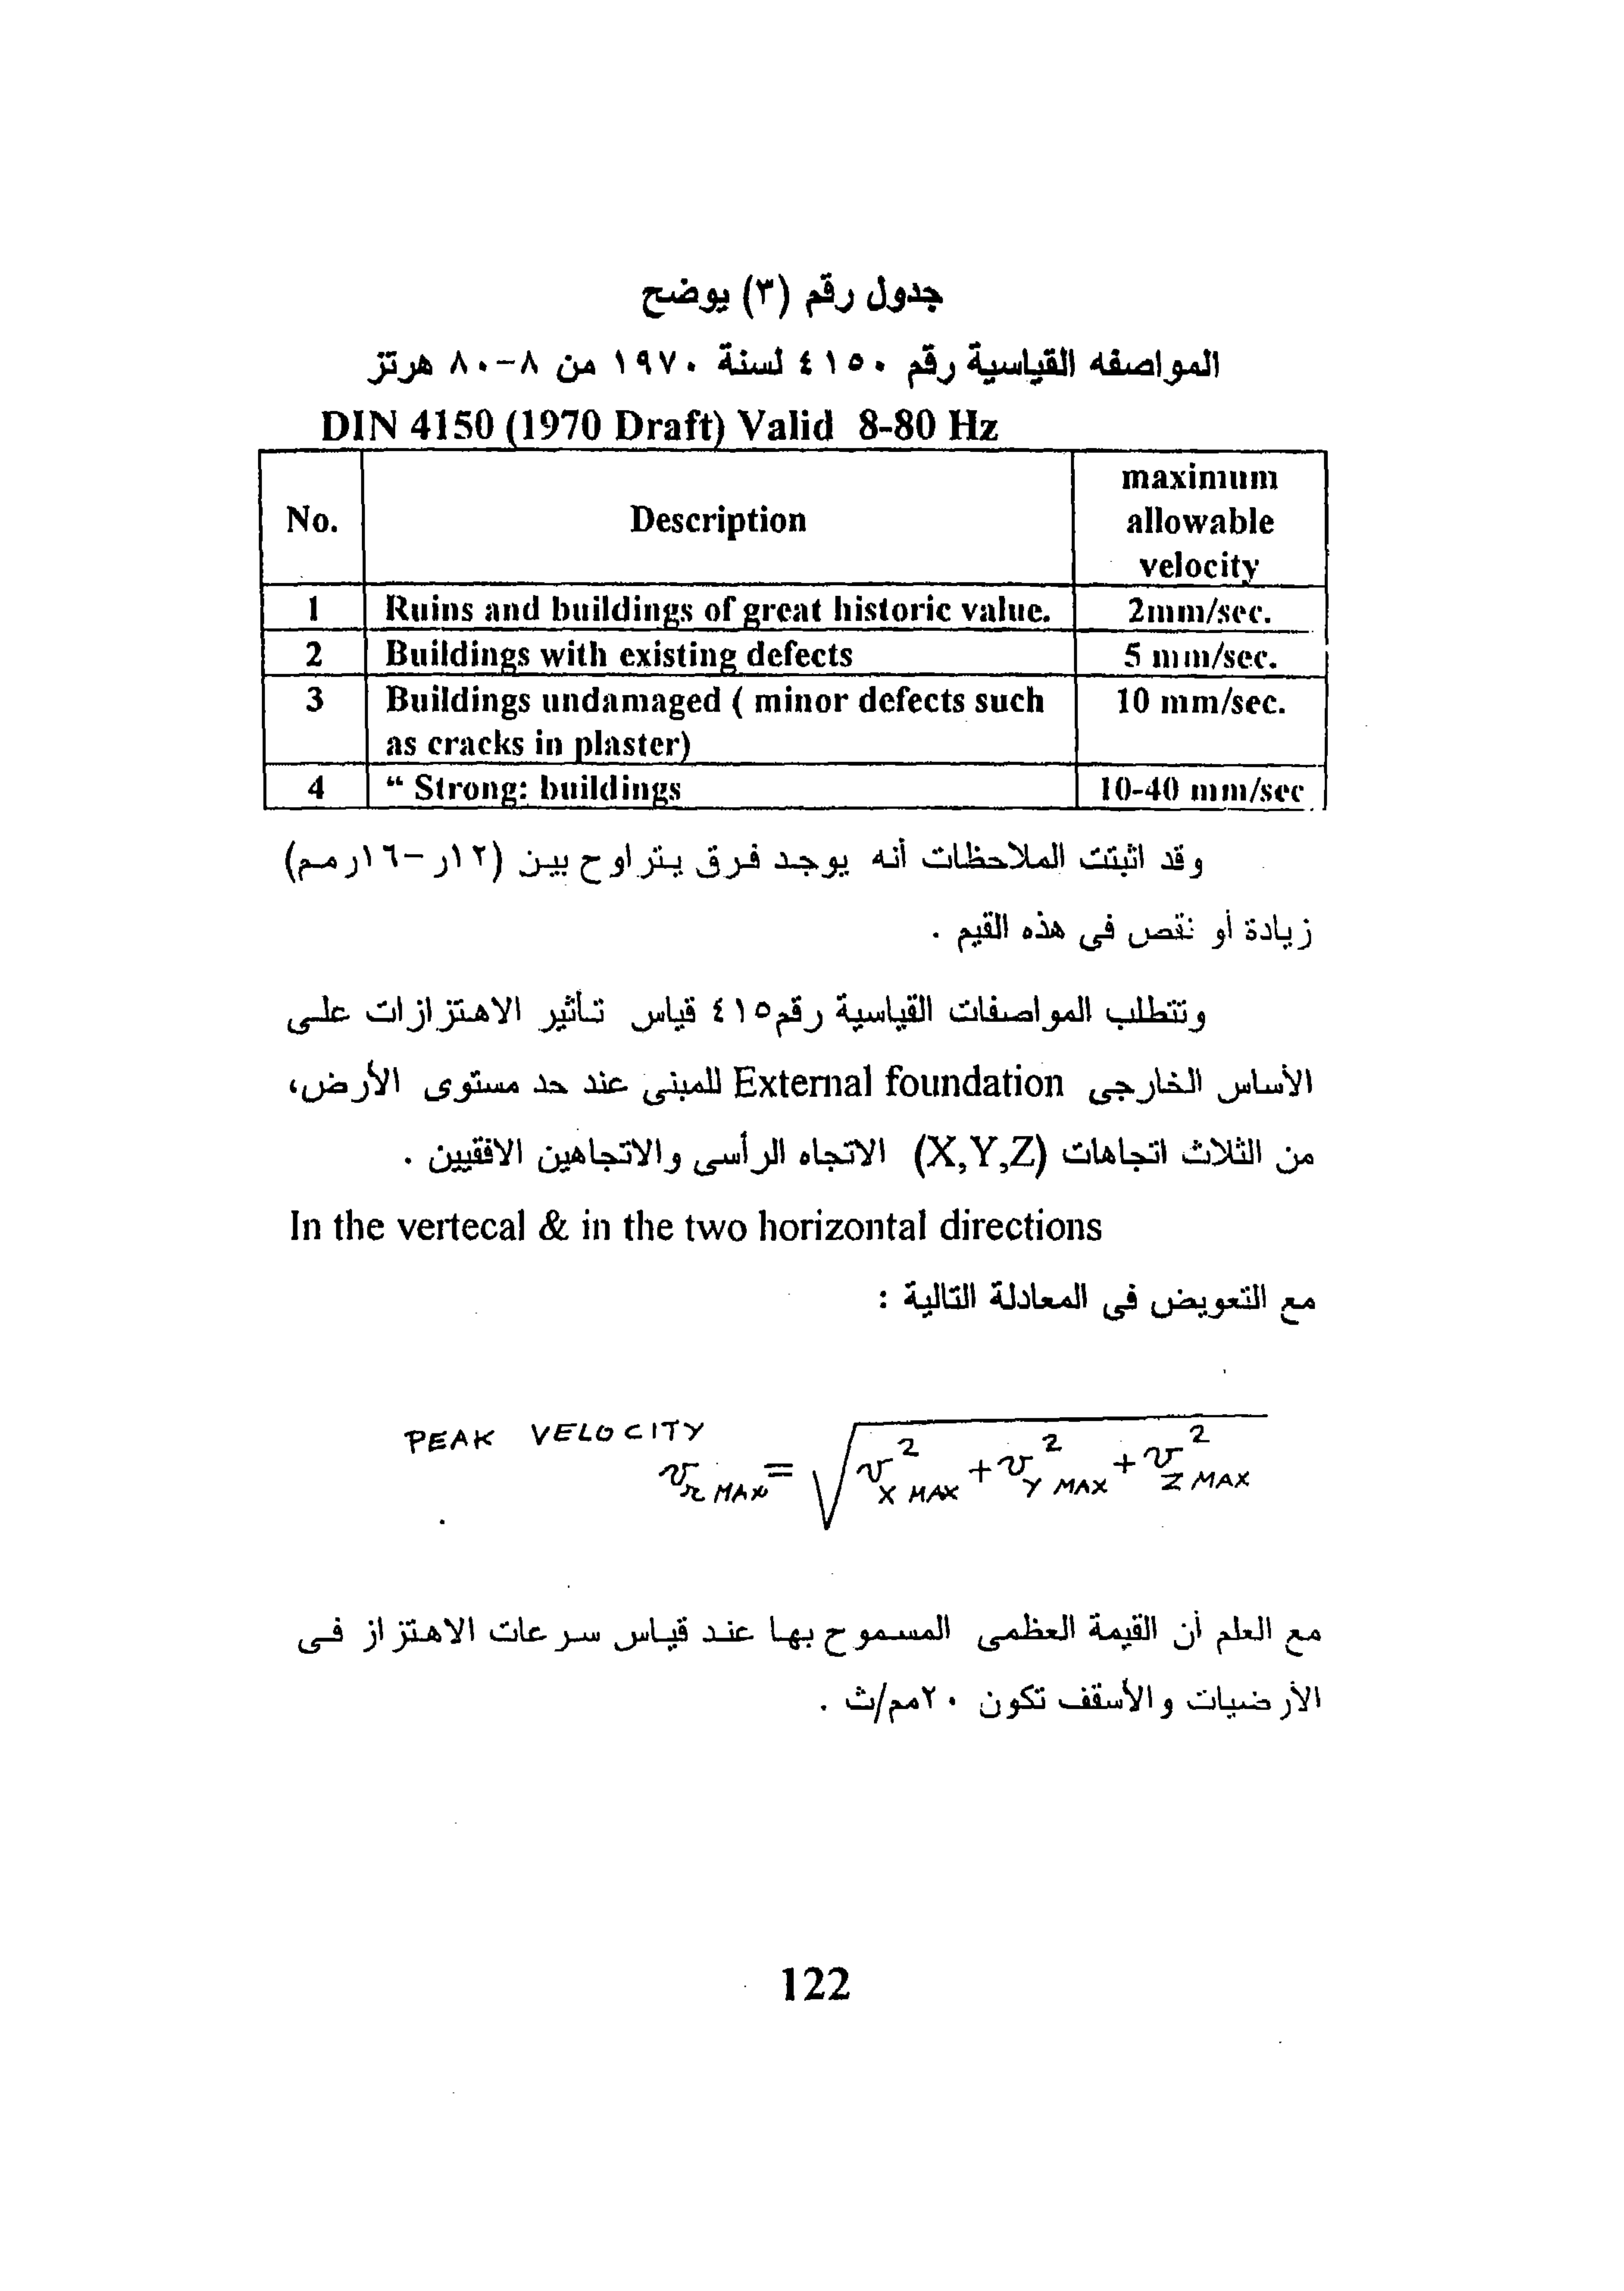 جدول رقم (٣) يوضح
المواصفه القياسية رقم ٤١٥٠ لسنة ١٩٧٠ من ٨-٨٠ هرتز
DIN 4150 (1970 Draft) Valid 8-80 Hz
No. Description maximum allowable velocity
1 Ruins and buildings of great historic value. 2mm/sec.
2 Buildings with existing defects 5 mm/sec.
3 Buildings undamaged ( minor defects such as cracks in plaster) 10 mm/sec.
4 “ Strong: buildings 10-40 mm/sec
وقد اثبتت الملاحظات أنه يوجد فرق يتراوح بين (١٢ر -١٦رمم)
زيادة أو نقص فى هذه القيم .
وتتطلب المواصفات القياسية رقم٤١٥ قياس تأثير الاهتزازات على
الأساس الخارجى External foundation للمبنى عند حد مستوى الأرض،
من الثلاث اتجاهات (X,Y,Z) الاتجاه الرأسى والاتجاهين الافقيين .
In the vertecal & in the two horizontal directions
مع التعويض فى المعادلة التالية :
PEAK VELOCITY
v r MAX = √ v² X MAX + v² Y MAX + v² Z MAX
مع العلم أن القيمة العظمى المسموح بها عند قياس سرعات الاهتزاز فى
الأرضيات والأسقف تكون ٢٠مم/ث .
122